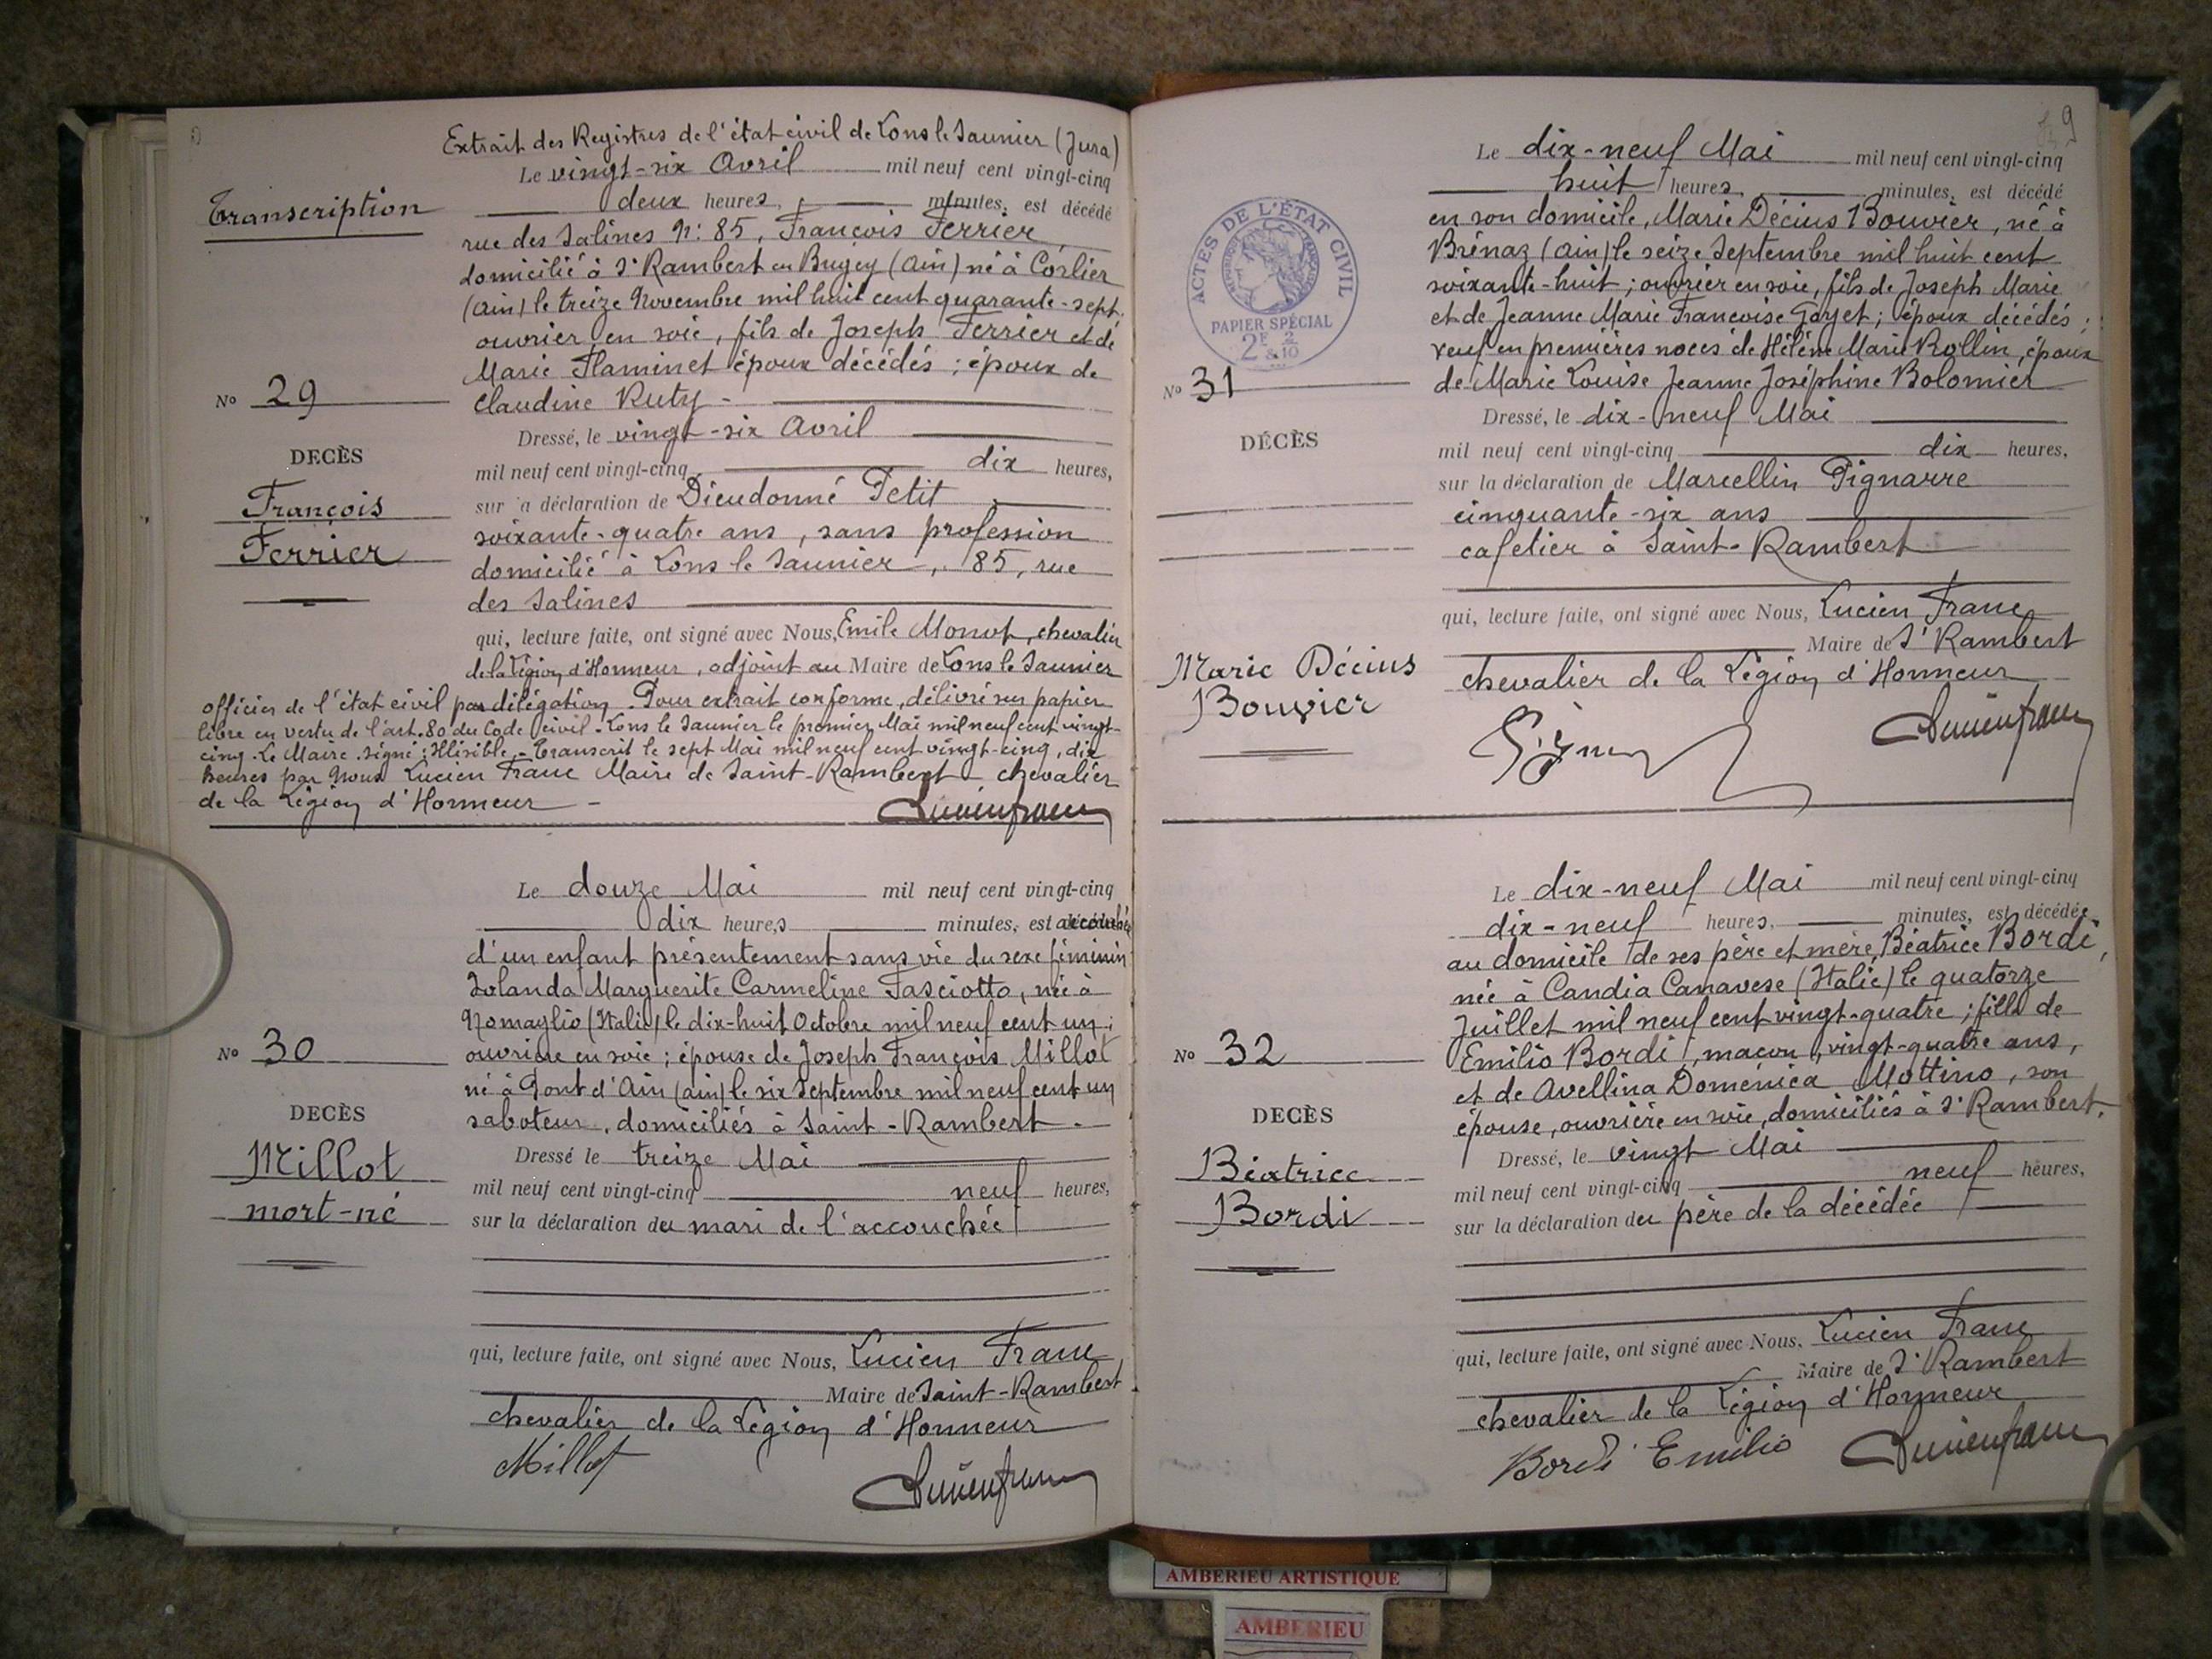 Extrait des Registres de l'état civil de Lons le Saunier (Jura)
Le vingt-six Avril mil neuf cent vingt-cinq
deux heures, minutes, est décédé
Transcription
rue des Salines N: 85, François Ferrier
domicilié à St Rambert en Bugey (Ain) né à Corlier
(Ain) le treize Novembre mil huit cent quarante-sept,
ouvrier en soie, fils de Joseph Ferrier et de
Marie Flaminet époux décédés ; époux de
Claudine Ruty -
No 29
Dressé, le vingt-six Avril
DECÈS
mil neuf cent vingt-cinq dix heures,
François
Ferrier
sur a déclaration de Dieudonné Petit
soixante-quatre ans, sans profession
domicilié à Lons le Saunier, 85, rue
des Salines
qui, lecture faite, ont signé avec Nous, Emile Monot, chevalier
de la Légion d'Honneur, adjoint au Maire de Lons le Saunier
officier de l'état civil par délégation. Pour extrait conforme, délivré sur papier
libre en vertu de l'art. 80 du Code civil - Lons le Saunier le premier Mai mil neuf cent vingt-
cinq. Le Maire. signé: Illisible. - Transcrit le sept Mai mil neuf cent vingt-cinq, dix
heures par Nous Lucien Franc Maire de Saint-Rambert - chevalier
de la Légion d'Honneur -
Lucien franc
Le douze Mai mil neuf cent vingt-cinq
dix heures minutes, est accouchée
d'un enfant présentement sans vie du sexe féminin
Iolanda Marguerite Carmeline Fasciotto, née à
Nomaglio (Italie) le dix-huit Octobre mil neuf cent un ;
ouvrière en soie ; épouse de Joseph François Millot
né à Pont d'Ain (ain) le six Septembre mil neuf cent un
saboteur, domiciliés à Saint-Rambert -
No 30
DECÈS
Millot
mort-né
Dressé le treize Mai
mil neuf cent vingt-cinq neuf heures,
sur la déclaration du mari de l'accouchée
qui, lecture faite, ont signé avec Nous, Lucien Franc
Maire de Saint-Rambert
chevalier de la Légion d'Honneur
Millot
Lucien franc
9
Le dix-neuf Mai mil neuf cent vingt-cinq
huit heures minutes, est décédé
en son domicile, Marie Décius Bouvier, né à
Brénaz (Ain) le seize Septembre mil huit cent
soixante-huit ; ouvrier en soie, fils de Joseph Marie
et de Jeanne Marie Françoise Gojet ; époux décédés ;
veuf en premières noces de Hélène Marie Rollin, époux
de Marie Louise Jeanne Joséphine Bolomier
ACTES DE L'ÉTAT CIVIL
RÉPUBLIQUE FRANÇAISE
PAPIER SPÉCIAL
2F 2/10
& 10
No 31
DÉCÈS
Dressé, le dix-neuf Mai
mil neuf cent vingt-cinq dix heures,
sur la déclaration de Marcellin Pignarre
cinquante-six ans
cafetier à Saint-Rambert
qui, lecture faite, ont signé avec Nous, Lucien Franc
Maire de St Rambert
chevalier de la Légion d'Honneur
Marie Décius
Bouvier
Lucien franc
Le dix-neuf Mai mil neuf cent vingt-cinq
dix-neuf heures, minutes, est décédée
au domicile de ses père et mère, Béatrice Bordi,
née à Candia Canavese (Italie) le quatorze
Juillet mil neuf cent vingt-quatre ; fille de
Emilio Bordi, maçon, vingt-quatre ans,
et de Avellina Doménica Mottino, son
épouse, ouvrière en soie, domiciliés à St Rambert.
No 32
DECÈS
Béatrice
Bordi
Dressé, le vingt Mai
mil neuf cent vingt-cinq neuf heures,
sur la déclaration du père de la décédée
qui, lecture faite, ont signé avec Nous, Lucien Franc
Maire de St Rambert
chevalier de la Légion d'Honneur
Bordi Emilio
Lucien franc
AMBERIEU ARTISTIQUE
AMBERIEU